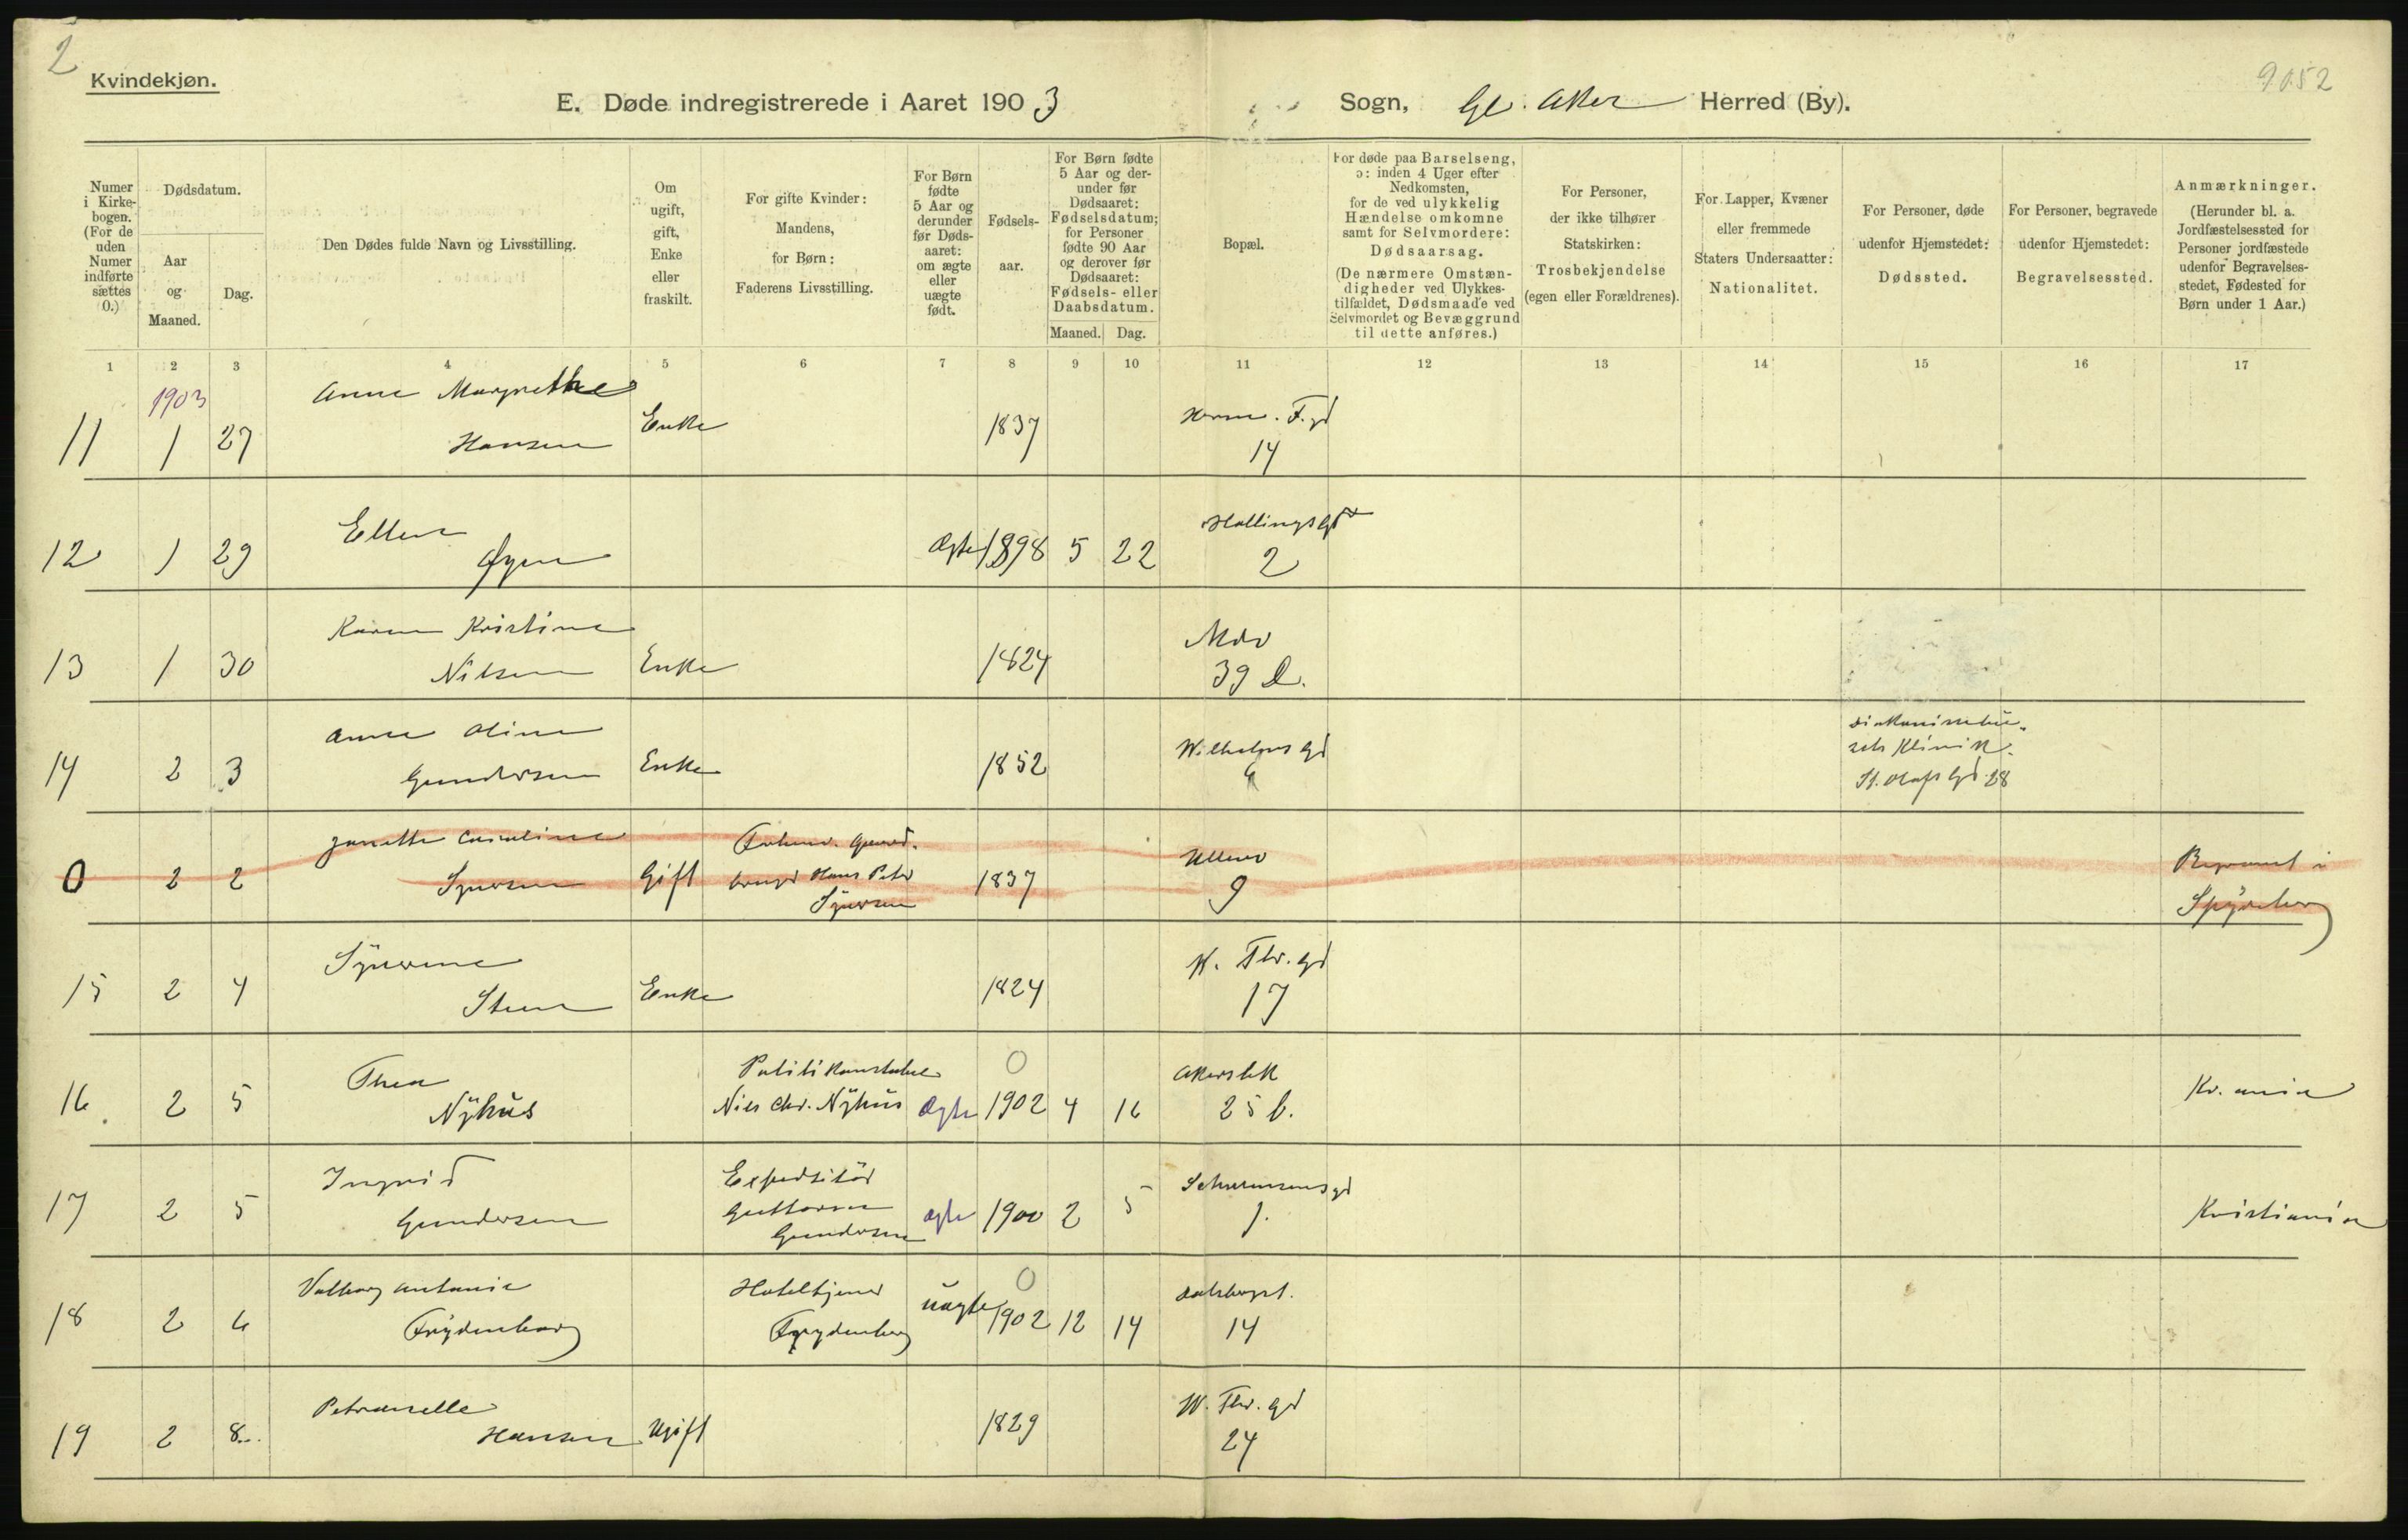 2
Kvindekjøn.
9052
E. Døde indregistrerede i Aaret 1903 Sogn, Gl. Aker Herred (By).
Numer i Kirkebogen. (For de uden Numer indførte sættes 0.)
Dødsdatum.
Aar og Maaned.
Dag.
Den Dødes fulde Navn og Livsstilling.
Om ugift, gift, Enke eller fraskilt.
For gifte Kvinder: Mandens, for Børn: Faderens Livsstilling.
For Børn fødte 5 Aar og derunder før Dødsaaret: om ægte eller uægte født.
Fødselsaar.
For Børn fødte 5 Aar og derunder før Dødsaaret: Fødselsdatum; for Personer fødte 90 Aar og derover før Dødsaaret: Fødsels- eller Daabsdatum.
Maaned. Dag.
Bopæl.
For døde paa Barselseng, ɔ: inden 4 Uger efter Nedkomsten, for de ved ulykkelig Hændelse omkomne samt for Selvmordere: Dødsaarsag. (De nærmere Omstændigheder ved Ulykkestilfældet, Dødsmaade ved Selvmordet og Bevæggrund til dette anføres.)
For Personer, der ikke tilhører Statskirken: Trosbekjendelse (egen eller Forældrenes).
For Lapper, Kvæner eller fremmede Staters Undersaatter: Nationalitet.
For Personer, døde udenfor Hjemstedet: Dødssted.
For Personer, begravede udenfor Hjemstedet: Begravelsessted.
Anmærkninger. (Herunder bl. a. Jordfæstelsessted for Personer jordfæstede udenfor Begravelsesstedet, Fødested for Børn under 1 Aar.)
1 2 3 4 5 6 7 8 9 10 11 12 13 14 15 16 17
1903
11 1 27 Anne Margrethe Hansen Enke 1837 Herm. F. gd 14
12 1 29 Ellen Øyen Ægte 1898 5 22 Hallings gd 2
13 1 30 Karen Kristine Nilsen Enke 1824 39
14 2 3 Anne Oline Gundersen Enke 1852 Wilhelms gd Klinik St. Olafs Gd 28
0 2 2 Janette Caroline Syversen Gift Hans Peter Syversen 1837 Ullev 9 Begravet i Spydeberg
15 2 4 Syverine Steen Enke 1824 W. Thr. gd 17
16 2 5 Thea Nÿhus Politikonstabel Nils Chr. Nÿhus Ægte 0 1902 4 16 Akersbk 25 b. Kr.ania
17 2 5 Ingrid Gundersen Expeditør Guttorm Gundersen ægte 1900 2 5 Schwensens gd 1. Kristiania
18 2 6 Valborg Antonie Frydenborg Hoteltjener Frydenberg uægte 0 1902 12 14 Dalsbergst. 14
19 2 8 Petronelle Hansen Ugift 1829 W. Thr. gd 24